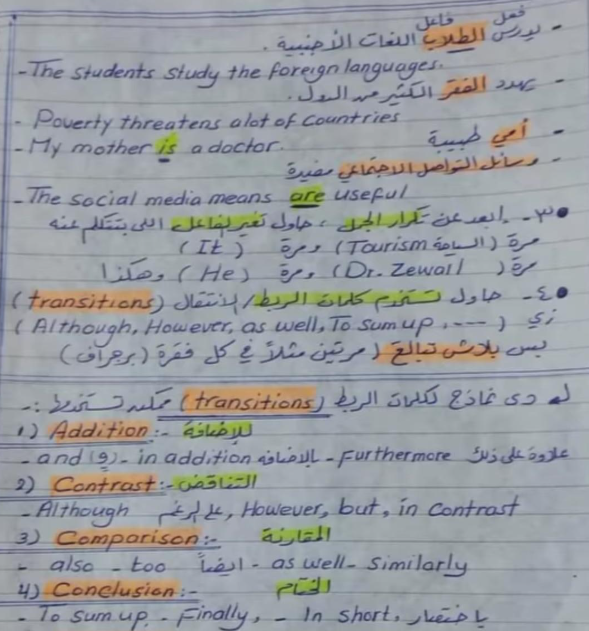 فعل فاعل
- يدرس الطلاب اللغات الأجنبية.
- The students study the foreign languages.
- يهدد الفقر الكثير من الدول.
- Poverty threatens a lot of countries
- أمي طبيبة
- My mother is a doctor.
- وسائل التواصل الاجتماعي مفيدة
- The social media means are useful
●٣- ابعد عن تكرار الجمل، حاول تغير الفاعل اللي بتتكلم عنه
مرة (السياحة Tourism) ومرة (It)
مرة (Dr. Zewail) ومرة (He) وهكذا
●٤- حاول تستخدم كلمات الربط/الانتقال (transitions)
زي (Although, However, as well, To sum up, ----)
بس بلاش تبالغ (مرتين مثلاً في كل فقرة (برجراف)
دي نماذج لكلمات الربط (transitions) ممكن تستخدمها :-
1) Addition:- للإضافة
- and (و) - in addition بالإضافة - Furthermore علاوة على ذلك
2) Contrast:- التناقض
- Although على الرغم, However, but, in contrast
3) Comparison:- المقارنة
- also - too ايضاً - as well - similarly
4) Conclusion:- الختام
- To sum up - Finally, - In short, باختصار